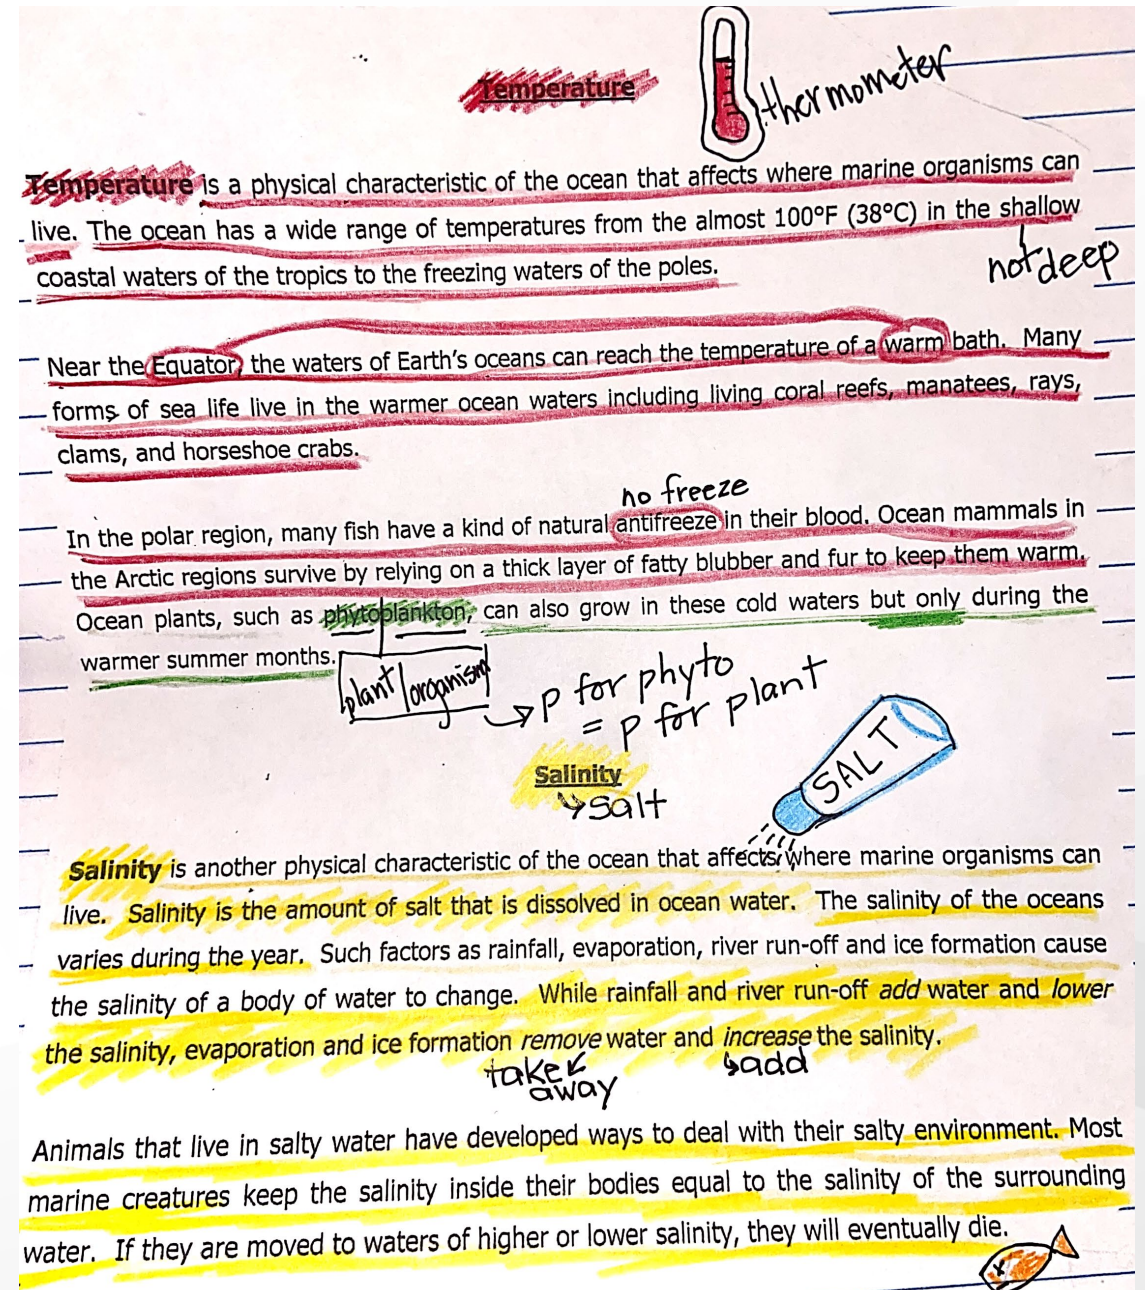 Temperature
thermometer
Temperature is a physical characteristic of the ocean that affects where marine organisms can
live. The ocean has a wide range of temperatures from the almost 100°F (38°C) in the shallow
not deep
coastal waters of the tropics to the freezing waters of the poles.
Near the Equator, the waters of Earth's oceans can reach the temperature of a warm bath. Many
forms of sea life live in the warmer ocean waters including living coral reefs, manatees, rays,
clams, and horseshoe crabs.
no freeze
In the polar region, many fish have a kind of natural antifreeze in their blood. Ocean mammals in
the Arctic regions survive by relying on a thick layer of fatty blubber and fur to keep them warm.
Ocean plants, such as phytoplankton, can also grow in these cold waters but only during the
warmer summer months.
plant organism
p for phyto
= p for plant
SALT
Salinity
salt
Salinity is another physical characteristic of the ocean that affects where marine organisms can
live. Salinity is the amount of salt that is dissolved in ocean water. The salinity of the oceans
varies during the year. Such factors as rainfall, evaporation, river run-off and ice formation cause
the salinity of a body of water to change. While rainfall and river run-off add water and lower
the salinity, evaporation and ice formation remove water and increase the salinity.
take away
add
Animals that live in salty water have developed ways to deal with their salty environment. Most
marine creatures keep the salinity inside their bodies equal to the salinity of the surrounding
water. If they are moved to waters of higher or lower salinity, they will eventually die.